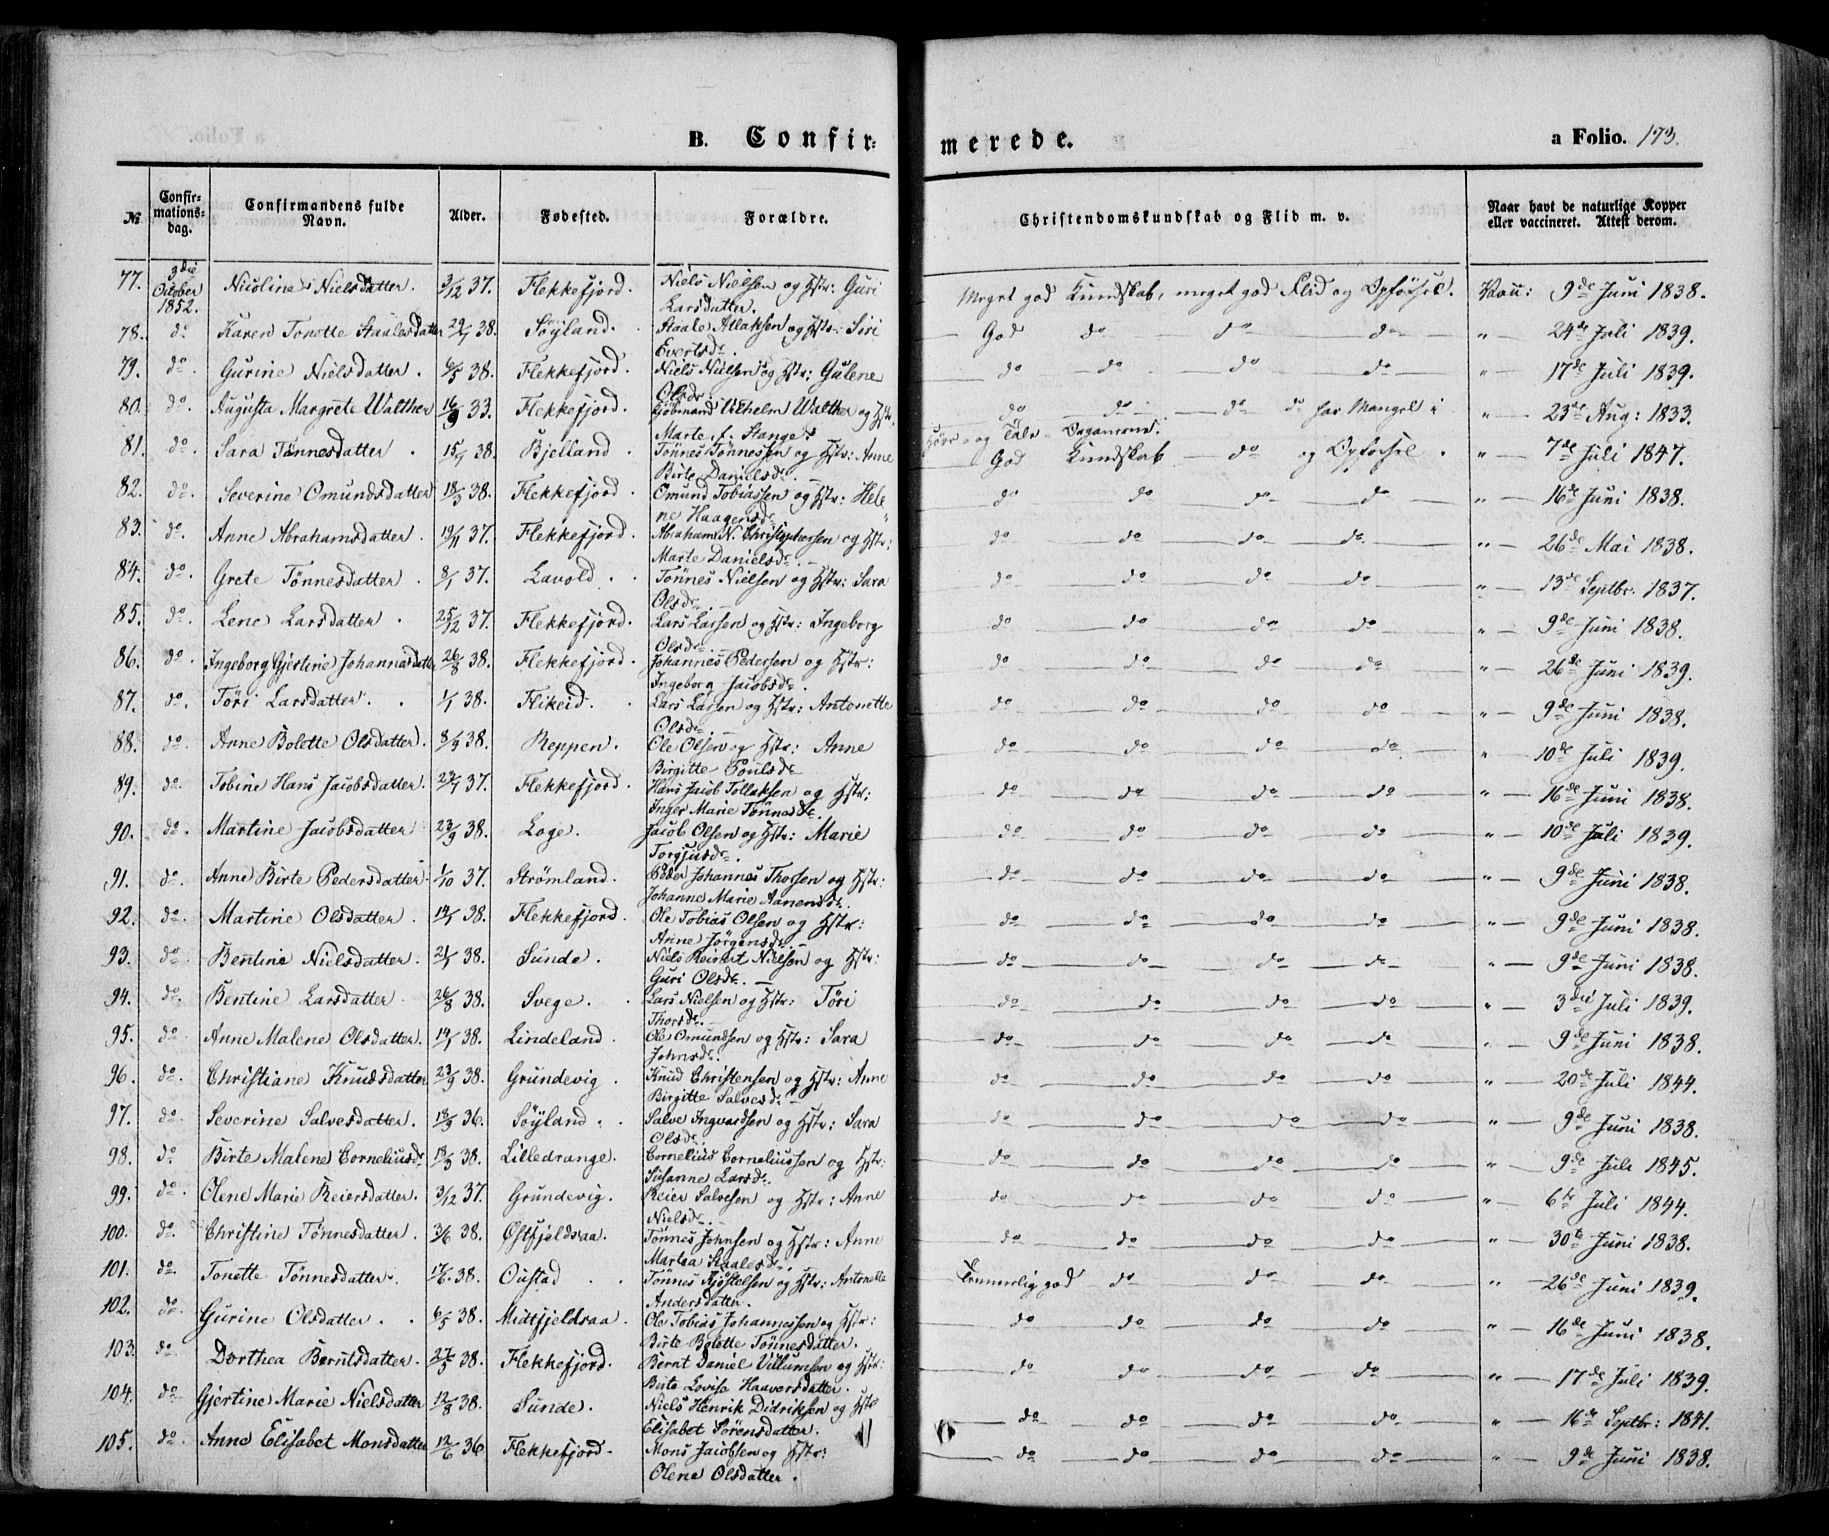 B. Confir- merede. a Folio. 173.
№ Confir-mations-dag. Confirmandens fulde Navn. Alder. Fødested. Forældre. Christendomskundskab og Flid m. v. Naar havt de naturlige Kopper eller vaccineret. Attest derom.
77. 3die October 1852. Nicoline Nielsdatter. 3/12 37. Flekkefjord. Niels Nielsen og Hstr: Guri Larsdatter. Meget god Kundskab, meget god Flid og Opførsel. Vacc: 9de Juni 1838.
78. do Karen Tonette Staalesdatter 29/1 38. Søyland. Staale Atlaksen og Hstr: Siri Evertsdr. God do do do " 24de Juli 1839.
79. do. Gurine Nielsdatter. 6/5 38. Flekkefjord. Niels Nielsen og Hstr: Gulene Olsdr. do do do do " 17de Juli 1839.
80. do. Augusta Margrete Walther 16/9 33. Flekkefjord. Kjøbmand Vilhelm Walther og Hstr. Marte f. Stange. do do do do har Mangel i Høre- og Tale-Organerne. " 23de Aug: 1833.
81. do. Sara Tønnesdatter. 15/1 38. Bjelland. Tønnes Tønnessen og Hstr: Anne Birte Danielsdr. God Kundskab do og Opførsel. " 7de Juli 1847.
82. do. Severine Omundsdatter 18/3 38. Flekkefjord. Omund Tobiassen og Hstr: Helene Haagensdr. do do do do " 16de Juni 1838.
83. do. Anne Abrahamsdatter. 19/11 37. Flekkefjord. Abraham N. Christophersen og Hstr: Marte Danielsdr. do do do do " 26de Mai 1838.
84. do. Grete Tønnesdatter. 8/1 37. Lavold. Tönnes Nielsen og Hstr: Sara Olsdr. do do do do " 13de Septbr. 1837.
85. do. Lene Larsdatter. 25/12 37. Flekkefjord. Lars Larsen og Hstr: Ingeborg Olsdr. do do do do " 9de Juni 1838.
86. do. Ingeborg Gjertine Johannesdatter 26/8 38. Flekkefjord. Johannes Pedersen og Hstr: Ingeborg Jacobsdr. do do do do " 26de Juni 1839.
87. do. Töri Larsdatter. 1/1 38. Flikeid. Lars Larsen og Hstr: Antonette Olsdr. do do do do " 9de Juni 1838.
88. do. Anne Bolette Olsdatter. 8/9 38. Reppen. Ole Olsen og Hstr: Anne Birgitte Poulsdr do do do do " 10de Juli 1839.
89. do. Tobine Hans Jacobsdatter. 27/7 37. Flekkefjord. Hans Jacob Tollaksen og Hstr: Inger Marie Tönnesdr. do do do do " 16de Juni 1838.
90. do. Martine Jacobsdatter 23/9 38. Loge. Jacob Olsen og Hstr: Marie Torgjusdr. do do do do " 10de Juli 1839.
91. do. Anne Birte Pedersdatter 1/10 37. Strømland. Peder Johannes Thorsen og Hstr: Johanne Marie Aanensdr. do do do do " 9de Juni 1838.
92. do. Martine Olsdatter. 14/1 38. Flekkefjord. Ole Tobias Olsen og Hstr: Anne Jørgensdr. do do do do " 9de Juni 1838.
93. do. Bentine Nielsdatter. 21/1 38. Sunde. Niels Reinert Nielsen og Hstr: Guri Olsdr. do do do do " 9de Juni 1838.
94. do. Bentine Larsdatter. 26/8 38. Svege. Lars Nielsen og Hstr: Töri Thorsdr. do do do do " 3die Juli 1839.
95. do. Anne Malene Olsdatter. 19/1 38. Lindeland. Ole Omundsen og Hstr: Sara Johnsdr. do do do do " 9de Juni 1838.
96. do. Christiane Knudsdatter 23/9 38. Grundevig. Knud Christensen og Hstr: Anne Birgitte Salvesdr. do do do do " 20de Juli 1844.
97. do Severine Salvesdatter. 13/9 36. Söyland. Salve Ingvardsen og Hstr: Sara Olsdr. do do do do " 9de Juni 1838.
98. do Birte Malene Corneliusdr. 13/3 38. Lilledrange. Cornelius Corneliussen og Hstr: Susanne Larsdr. do do do do " 9de Juli 1845.
99. do. Olene Marie Reiersdatter. 3/12 37. Grundevig. Reier Salvesen og Hstr: Anne Nielsdr. do do do do " 6te Juli 1844.
100. do. Christine Tönnesdatter. 3/6 38. Østfjeldsaa. Tønnes Johnsen og Hstr: Anne Martha Staalesdr. do do do do " 30te Juni 1838.
101. do. Tonette Tönnesdatter. 17/6 38. Oustad. Tönnes Kjöstelsen og Hstr: Antonette Andersdatter. Temmelig god do do do " 26de Juni 1839.
102. do. Gurine Olsdatter. 6/5 38. Midtfjeldsaa. Ole Tobias Johannessen og Hstr: Birte Bolette Tönnesdatter. do do do do " 16de Juni 1838.
103. do. Dorthea Berntsdatter. 27/5 38. Flekkefjord. Bernt Daniel Villumsen og Hstr: Birte Lovise Haaversdatter. do do do do " 17de Juli 1839.
104. do. Gjertine Marie Nielsdatter 12/8 38. Sunde. Niels Henrik Didriksen og Hstr Elisabet Sörensdatter. do do do do " 16de Septbr: 1841.
105. do. Anne Elisabet Monsdatter 12/6 36 Flekkefjord. Mons Jacobsen og Hstr: Olene Olsdatter. do do do do " 9de Juni 1838.